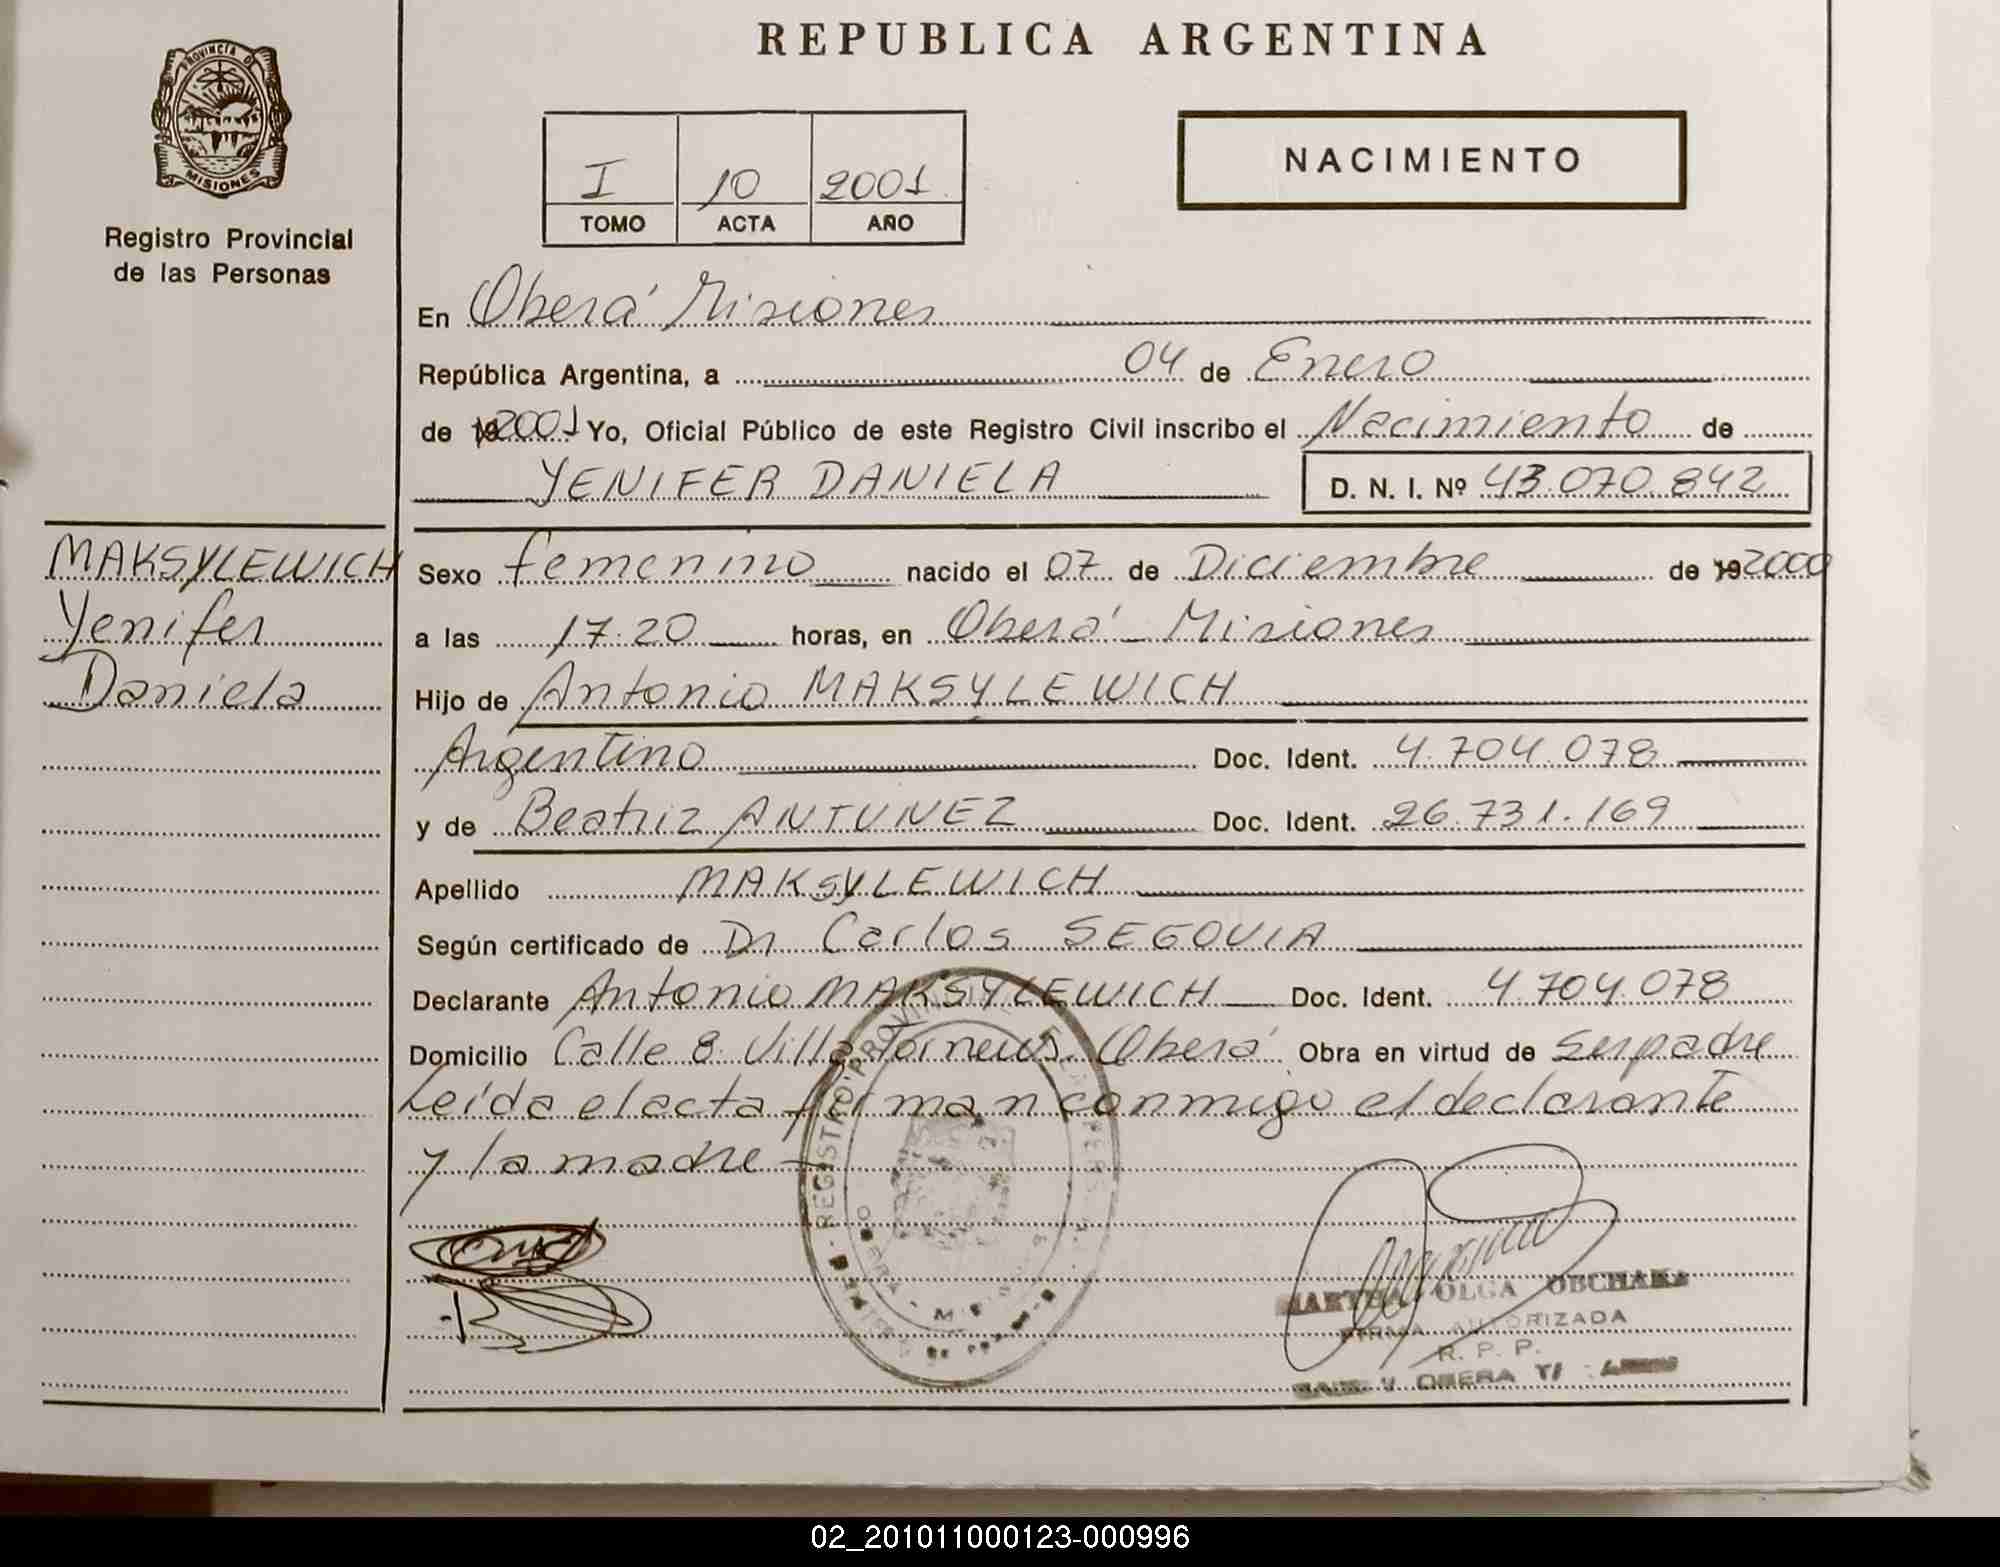 REPUBLICA ARGENTINA
PROVINCIA DE
MISIONES
Registro Provincial
de las Personas
I 10 2001
TOMO ACTA AÑO
NACIMIENTO
En Oberá Misiones
República Argentina, a 04 de Enero
de 19 2001 Yo, Oficial Público de este Registro Civil inscribo el Nacimiento de
YENIFER DANIELA D. N. I. Nº 43.070.842
MAKSYLEWICH
Yenifer
Daniela
Sexo femenino nacido el 07 de Diciembre de 19 2000
a las 17.20 horas, en Oberá - Misiones
Hijo de Antonio MAKSYLEWICH
Argentino Doc. Ident. 4.704.078
y de Beatriz ANTUNEZ Doc. Ident. 26.731.169
Apellido MAKSYLEWICH
Según certificado de Dr Carlos SEGOVIA
Declarante Antonio MAKSYLEWICH Doc. Ident. 4.704.078
Domicilio Calle 8 Villa Oberá Obra en virtud de Ser padre
Leída el acta firman conmigo el declarante
y la madre -
REGISTRO PROVINCIAL
OBERA
MARTHA OLGA OBCHAKA
FIRMA AUTORIZADA
R. P. P.
OBERA
02_201011000123-000996